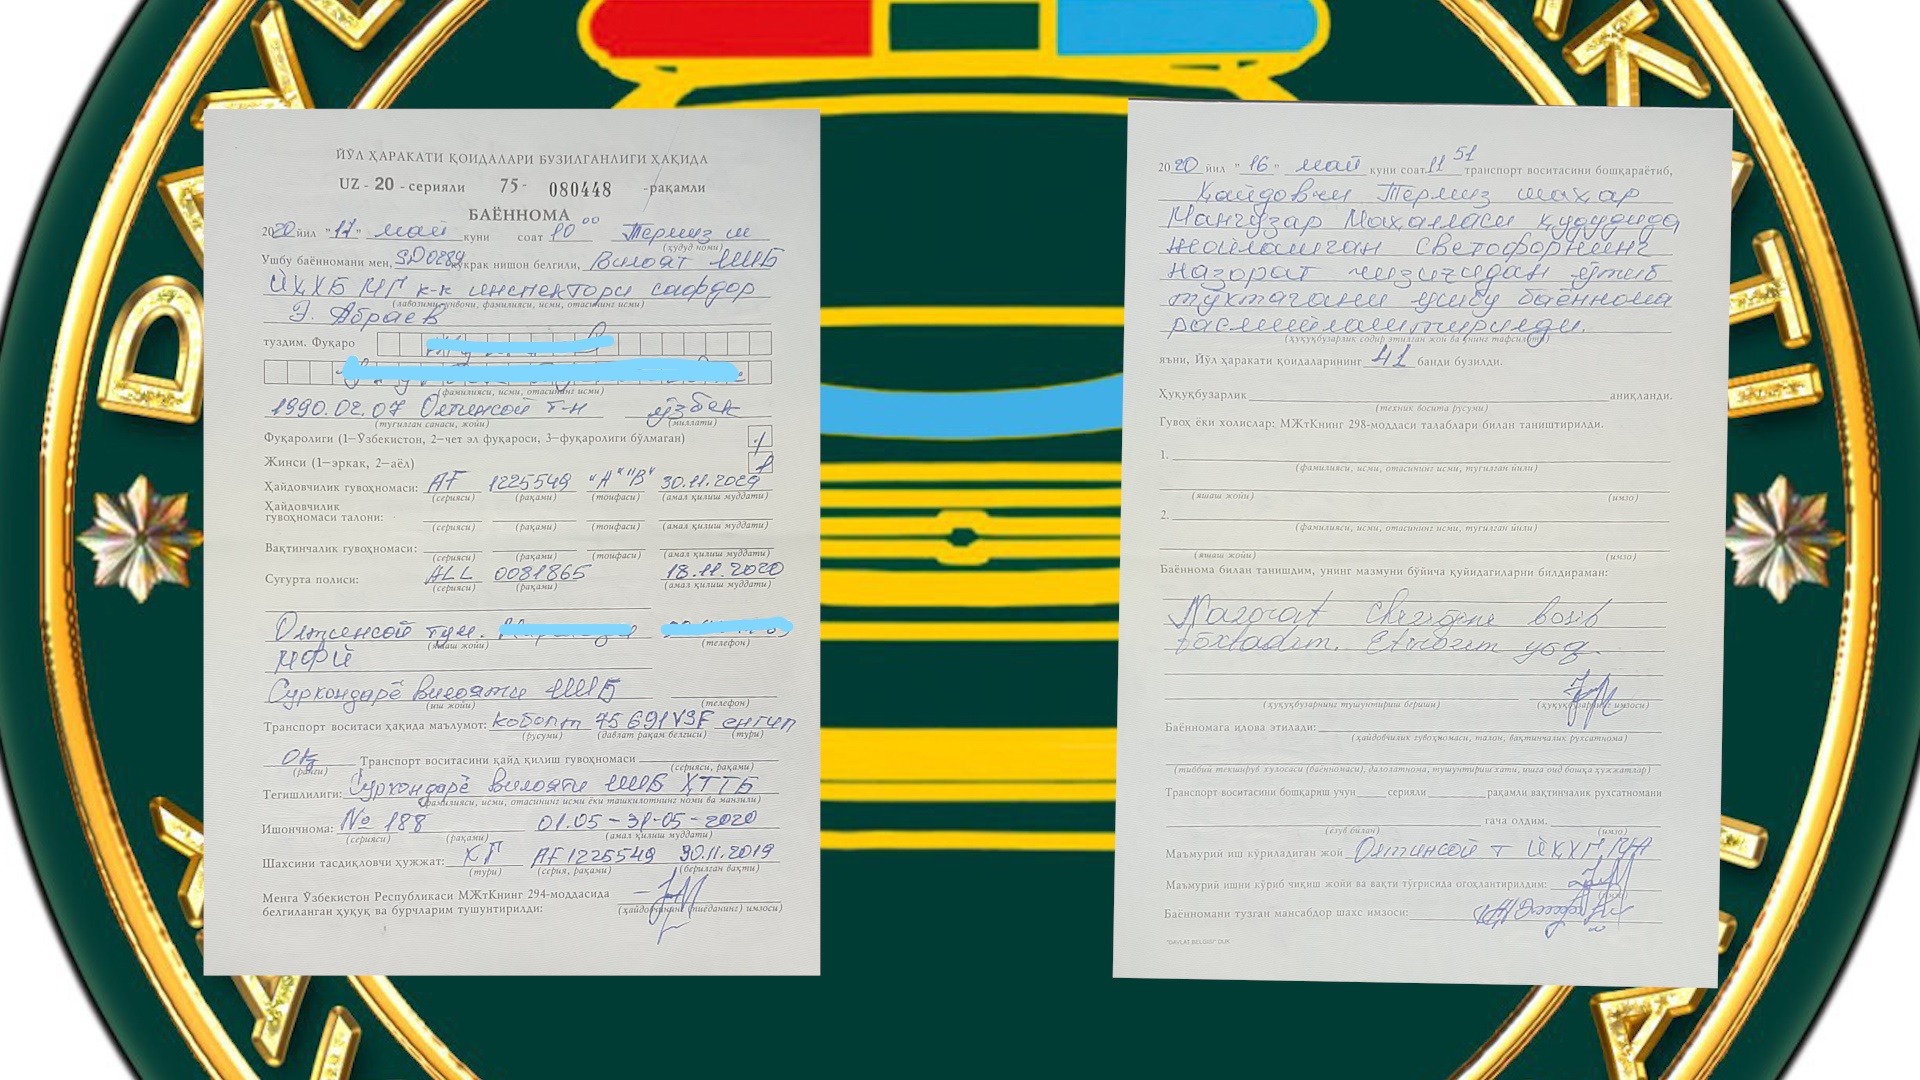 ЙЎЛ ҲАРАКАТИ ҚОИДАЛАРИ БУЗИЛГАНЛИГИ ҲАҚИДА
UZ - 20 - серияли 75- 080448 -рақамли
БАЁННОМА
2020 йил "17" май куни соат 10 00 Термиз ш
(ҳудуд номи)
Ушбу баённомани мен, SD0284 кўкрак нишон белгили, Вилоят ИИБ
ЙҲХБ МГ к-к инспектори сафдор
(лавозими, унвони, фамилияси, исми, отасининг исми)
Э. Абраев
туздим. Фуқаро
(фамилияси, исми, отасининг исми)
1990.02.07 Олтинсой т-н ўзбек
(туғилган санаси, жойи) (миллати)
Фуқаролиги (1—Ўзбекистон, 2—чет эл фуқароси, 3—фуқаролиги бўлмаган) 1
Жинси (1—эркак, 2—аёл) 1
Ҳайдовчилик гувоҳномаси: AF 1225549 "А" "В" 30.11.2029
(серияси) (рақами) (тоифаси) (амал қилиш муддати)
Ҳайдовчилик
гувоҳномаси талони:
(серияси) (рақами) (тоифаси) (амал қилиш муддати)
Вақтинчалик гувоҳномаси:
(серияси) (рақами) (тоифаси) (амал қилиш муддати)
Суғурта полиси: ALL 0081865 18.11.2020
(серияси) (рақами) (амал қилиш муддати)
Олтинсой тум.
(яшаш жойи) (телефон)
МФЙ
Сурхондарё вилояти ИИБ
(иш жойи) (телефон)
Транспорт воситаси ҳақида маълумот: кобольт 75 691 VSF енгил
(русуми) (давлат рақам белгиси) (тури)
Оқ Транспорт воситасини қайд қилиш гувоҳномаси
(ранги) (серияси, рақами)
Тегишлилиги: Сурхондарё вилояти ИИБ ҲТТБ
(фамилияси, исми, отасининг исми ёки ташкилотнинг номи ва манзили)
Ишончнома: № 188 01.05 - 31-05-2020
(серияси) (рақами) (амал қилиш муддати)
Шахсини тасдиқловчи ҳужжат: ХГ AF 1225549 30.11.2019
(тури) (серия, рақами) (берилган вақти)
Менга Ўзбекистон Республикаси МЖтКнинг 294-моддасида
белгиланган ҳуқуқ ва бурчларим тушунтирилди: (ҳайдовчининг (пиёданинг) имзоси)
2020 йил "16" май куни соат 11 51 транспорт воситасини бошқараётиб,
Ҳайдовчи Термиз шаҳар
Мангузар Маҳалласи ҳудудида
жойлашган светофорнинг
назорат чизиғидан ўтиб
тўхтагани ушбу баённома
расмийлаштирилди.
(ҳуқуқбузарлик содир этилган жой ва унинг тафсилоти)
яъни, Йўл ҳаракати қоидаларининг 41 банди бузилди.
Ҳуқуқбузарлик аниқланди.
(техник восита русуми)
Гувоҳ ёки холислар: МЖтКнинг 298-моддаси талаблари билан таништирилди.
1.
(фамилияси, исми, отасининг исми, туғилган йили)
(яшаш жойи) (имзо)
2.
(фамилияси, исми, отасининг исми, туғилган йили)
(яшаш жойи) (имзо)
Баённома билан танишдим, унинг мазмуни бўйича қуйидагиларни билдираман:
Nazorat chizigini bosib
toxtadim. Etirozim yoq.
(ҳуқуқбузарнинг тушунтириш бериши) (ҳуқуқбузарнинг имзоси)
Баённомага илова этилади:
(ҳайдовчилик гувоҳномаси, талон, вақтинчалик рухсатнома)
(тиббий текширув хулосаси (баённомаси), далолатнома, тушунтириш хати, ишга оид бошқа ҳужжатлар)
Транспорт воситасини бошқариш учун серияли рақамли вақтинчалик рухсатномани
гача олдим.
(ёзув билан) (имзо)
Маъмурий иш кўриладиган жой Олтинсой т ЙҲХГ, МА
Маъмурий ишни кўриб чиқиш жойи ва вақти тўғрисида огоҳлантирилдим:
(имзо)
Баённомани тузган мансабдор шахс имзоси:
"DAVLAT BELGISI" DUK